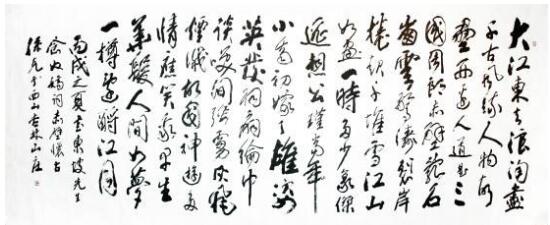 大江東去浪淘盡
千古風流人物故
壘西邊人道是三
國周郎赤壁亂石
崩雲驚濤裂岸
捲起千堆雪江山
如畫一時多少豪傑
遥想公瑾當年
小喬初嫁了雄姿
英發羽扇綸巾
談笑間強虜灰飛
煙滅故國神遊多
情應笑我早生
華髮人間如夢
一樽還酹江月
丙戌之夏書東坡先生
念奴嬌詞赤壁懷古
於西山杏林山莊